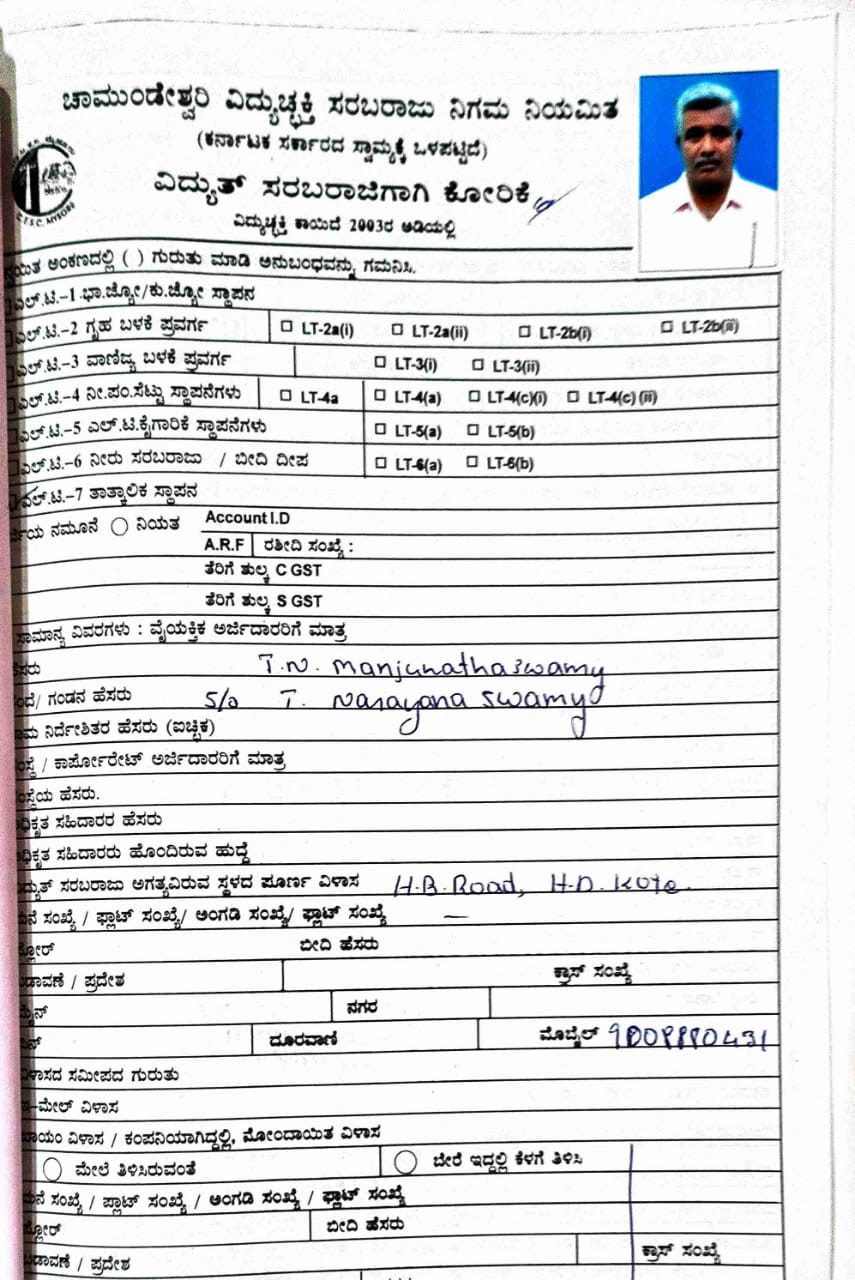 ಚಾಮುಂಡೇಶ್ವರಿ ವಿದ್ಯುಚ್ಛಕ್ತಿ ಸರಬರಾಜು ನಿಗಮ ನಿಯಮಿತ
(ಕರ್ನಾಟಕ ಸರ್ಕಾರದ ಸ್ವಾಮ್ಯಕ್ಕೆ ಒಳಪಟ್ಟಿದೆ)
ವಿದ್ಯುತ್ ಸರಬರಾಜಿಗಾಗಿ ಕೋರಿಕೆ
ವಿದ್ಯುಚ್ಛಕ್ತಿ ಕಾಯಿದೆ 2003ರ ಅಡಿಯಲ್ಲಿ
ಅಂಕಣದಲ್ಲಿ ( ) ಗುರುತು ಮಾಡಿ ಅನುಬಂಧವನ್ನು ಗಮನಿಸಿ.
ಎಲ್.ಟಿ.-1 ಭಾ.ಜ್ಯೋ/ಕು.ಜ್ಯೋ ಸ್ಥಾಪನ
ಎಲ್.ಟಿ.-2 ಗೃಹ ಬಳಕೆ ಪ್ರವರ್ಗ LT-2a(i) LT-2a(ii) LT-2b(i) LT-2b(ii)
ಎಲ್.ಟಿ.-3 ವಾಣಿಜ್ಯ ಬಳಕೆ ಪ್ರವರ್ಗ LT-3(i) LT-3(ii)
ಎಲ್.ಟಿ.-4 ನೀ.ಪಂ.ಸೆಟ್ಟು ಸ್ಥಾಪನೆಗಳು LT-4a LT-4(a) LT-4(c)(i) LT-4(c)(ii)
ಎಲ್.ಟಿ.-5 ಎಲ್.ಟಿ.ಕೈಗಾರಿಕೆ ಸ್ಥಾಪನೆಗಳು LT-5(a) LT-5(b)
ಎಲ್.ಟಿ.-6 ನೀರು ಸರಬರಾಜು / ಬೀದಿ ದೀಪ LT-6(a) LT-6(b)
ಎಲ್.ಟಿ.-7 ತಾತ್ಕಾಲಿಕ ಸ್ಥಾಪನ
ನಮೂನೆ ನಿಯತ Account I.D
A.R.F ರಶೀದಿ ಸಂಖ್ಯೆ :
ತೆರಿಗೆ ಶುಲ್ಕ C GST
ತೆರಿಗೆ ಶುಲ್ಕ S GST
ಸಾಮಾನ್ಯ ವಿವರಗಳು : ವೈಯಕ್ತಿಕ ಅರ್ಜಿದಾರರಿಗೆ ಮಾತ್ರ
T.N. Manjunathaswamy
ಗಂಡನ ಹೆಸರು S/o T. Narayana swamy
ನಿರ್ದೇಶಿತರ ಹೆಸರು (ಐಚ್ಛಿಕ)
/ ಕಾರ್ಪೋರೇಟ್ ಅರ್ಜಿದಾರರಿಗೆ ಮಾತ್ರ
ಹೆಸರು.
ಸಹಿದಾರರ ಹೆಸರು
ಸಹಿದಾರರು ಹೊಂದಿರುವ ಹುದ್ದೆ
ಸರಬರಾಜು ಅಗತ್ಯವಿರುವ ಸ್ಥಳದ ಪೂರ್ಣ ವಿಳಾಸ H.B. Road, H.D. Kote.
ಸಂಖ್ಯೆ / ಫ್ಲಾಟ್ ಸಂಖ್ಯೆ/ ಅಂಗಡಿ ಸಂಖ್ಯೆ/ ಫ್ಲಾಟ್ ಸಂಖ್ಯೆ —
ಬೀದಿ ಹೆಸರು
/ ಪ್ರದೇಶ ಕ್ರಾಸ್ ಸಂಖ್ಯೆ
ನಗರ
ದೂರವಾಣಿ ಮೊಬೈಲ್
ಸಮೀಪದ ಗುರುತು
ವಿಳಾಸ
ವಿಳಾಸ / ಕಂಪನಿಯಾಗಿದ್ದಲ್ಲಿ, ನೋಂದಾಯಿತ ವಿಳಾಸ
ಮೇಲೆ ತಿಳಿಸಿರುವಂತೆ ಬೇರೆ ಇದ್ದಲ್ಲಿ ಕೆಳಗೆ ತಿಳಿಸಿ
ಸಂಖ್ಯೆ / ಪ್ಲಾಟ್ ಸಂಖ್ಯೆ / ಅಂಗಡಿ ಸಂಖ್ಯೆ / ಫ್ಲಾಟ್ ಸಂಖ್ಯೆ
ಬೀದಿ ಹೆಸರು
/ ಪ್ರದೇಶ ಕ್ರಾಸ್ ಸಂಖ್ಯೆ